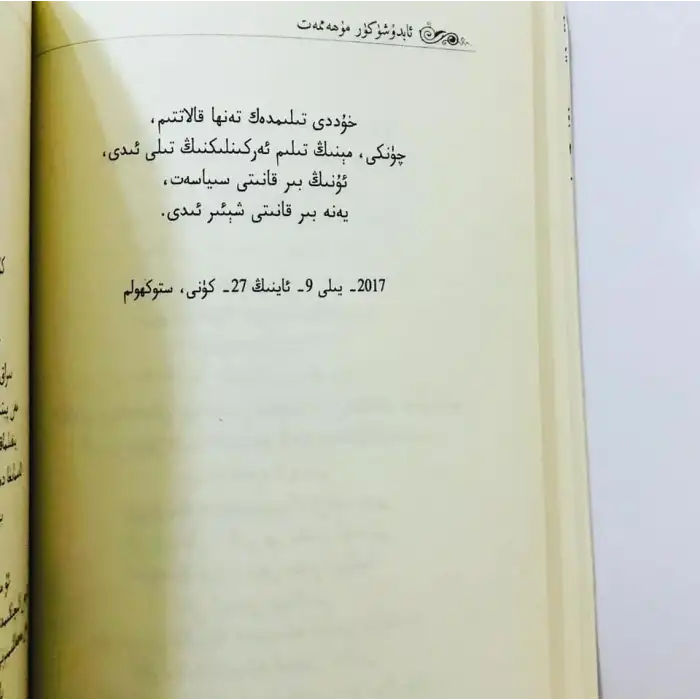 ئابدۇشۈكۈر مۇھەممەت
خۇددى تىلىمدەك تەنھا قالاتتىم،
چۈنكى، مېنىڭ تىلىم ئەركىنلىكنىڭ تىلى ئىدى،
ئۇنىڭ بىر قانىتى سىياسەت،
يەنە بىر قانىتى شېئىر ئىدى.
2017- يىلى 9- ئاينىڭ 27- كۈنى، ستوكھولم